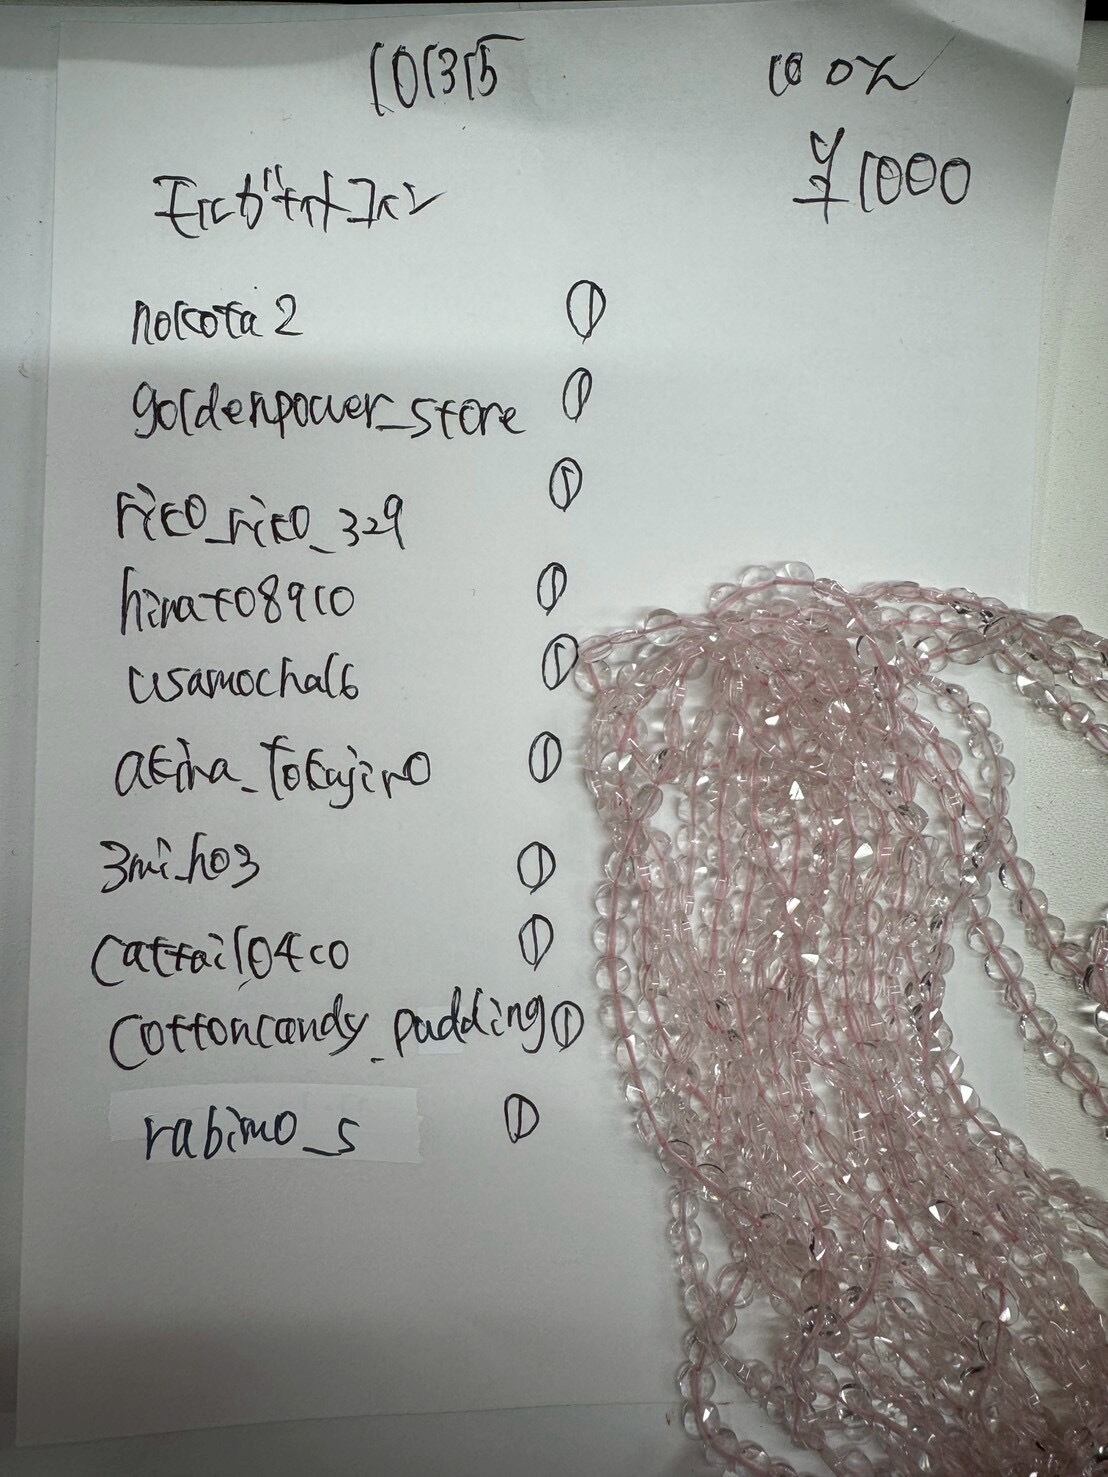 101315
100%
¥1000
モルガナイトコイン
nokota2 ①
goldenpower_store ①
rico_rico_329 ①
hinato8910 ①
usamocha16 ①
akina_tokujiro ①
3mi_ho3 ①
cattail0410 ①
cottoncandy_pudding ①
rabimo_s ①